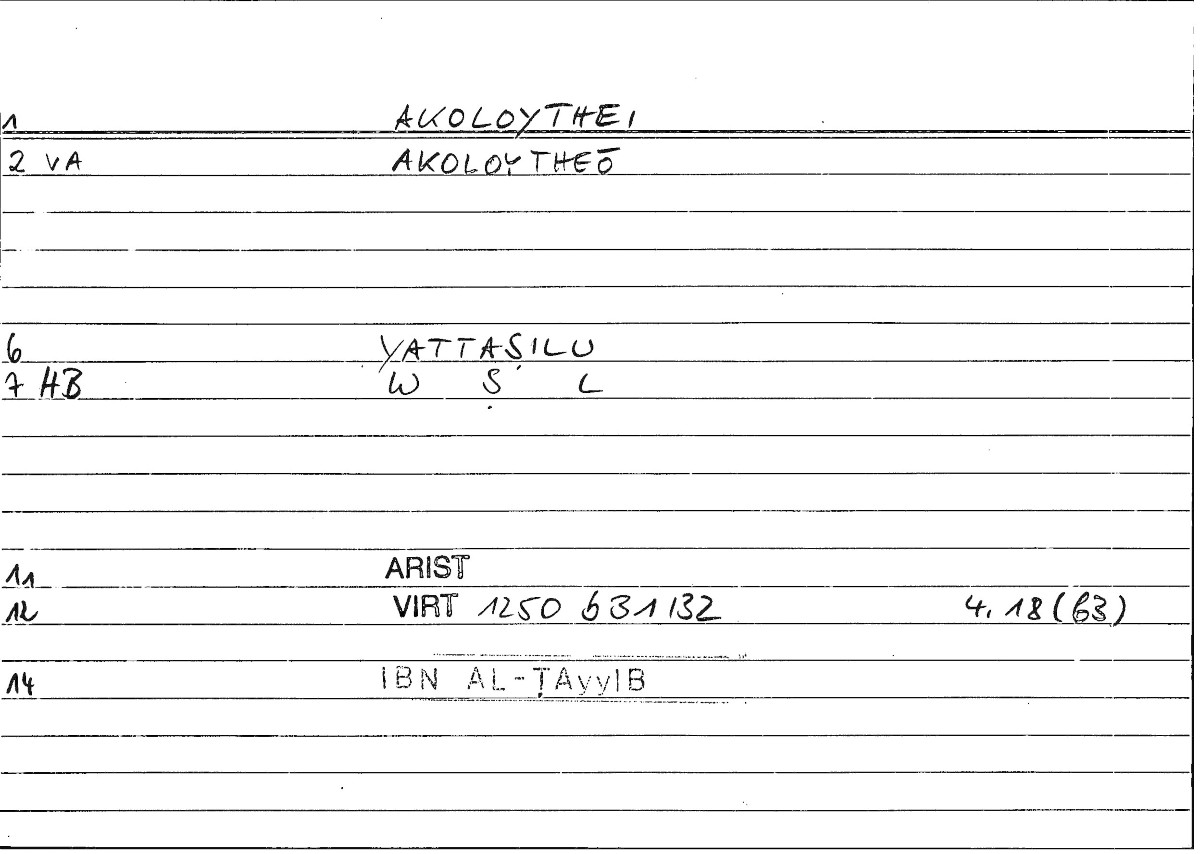 1 AKOLOYTHEI
2 VA AKOLOYTHEŌ
6 YATTAṢILU
7 HB W Ṣ L
11 ARIST
12 VIRT 1250 b31 132 4, 18 (63)
14 IBN AL-ṬAyyIB